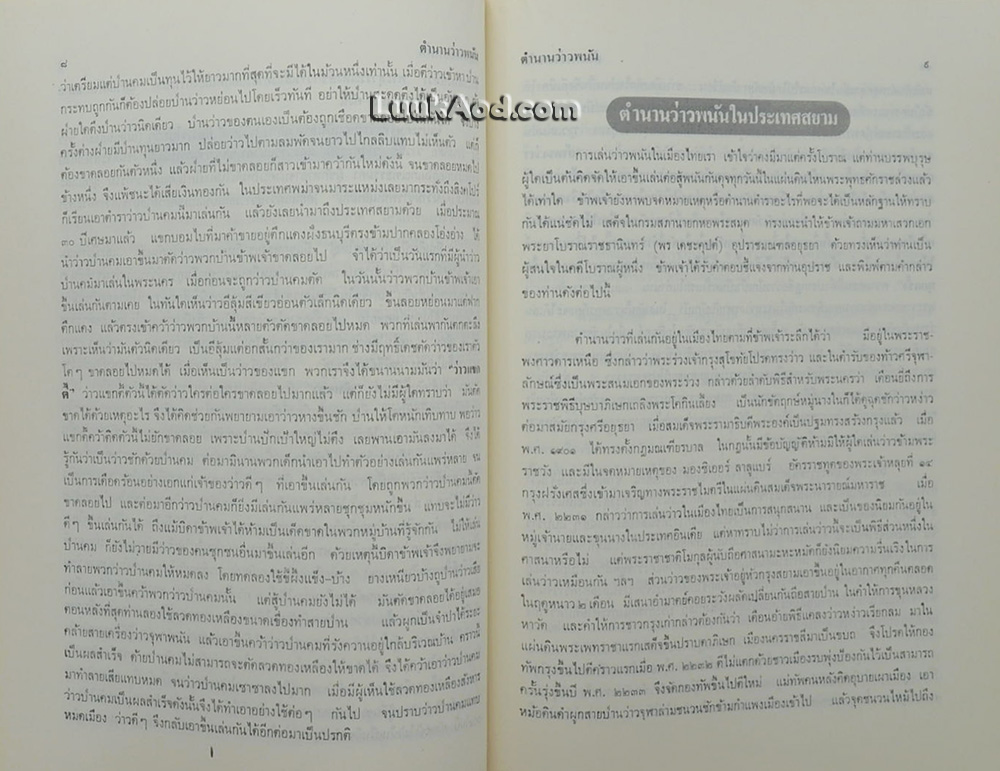 ๘
ตำนานว่าวพนัน
ว่าเตรียมแต่ป่านคมเป็นทุนไว้ให้ยาวมากที่สุดที่จะมีได้ในม้วนหนึ่งเท่านั้น เมื่อตีว่าวเข้าหาป่าน
กระทบถูกกันก็ต้องปล่อยป่านว่าวหย่อนไปโดยเร็วทันที อย่าให้ป่าน
ฝ่ายใดตึงป่านว่าวนิดเดียว ป่านว่าวของตนเองเป็นต้องถูกเชือดขาด
ครั้งต่างฝ่ายมีป่านทุนยาวมาก ปล่อยว่าวไปตามลมพัดจนยาวไปไกลลิบแทบไม่เห็นตัว แต่ก็
ต้องขาดลอยกันตัวหนึ่ง แล้วฝ่ายที่ไม่ขาดลอยก็สาวเข้ามาคว้ากันใหม่ดังนี้ จนขาดลอยหมดไป
ข้างหนึ่ง จึงแพ้ชนะได้เสียเงินทองกัน ในประเทศพม่าจนมาระแหม่งเลยมากระทั่งถึงสิงคโปร์
ก็เรียนเอาตำราว่าวป่านคมนี้มาเล่นกัน แล้วยังเลยนำมาถึงประเทศสยามด้วย เมื่อประมาณ
๓๐ ปีเศษมาแล้ว แขกบอมไบที่มาค้าขายอยู่ตึกแดงฝั่งธนบุรีตรงข้ามปากคลองโอ่งอ่าง ได้
นำว่าวป่านคมเอาขึ้นมาตัดว่าวพวกบ้านข้าพเจ้าขาดลอยไป จำได้ว่าเป็นวันแรกที่มีผู้นำว่าว
ป่านคมมาเล่นในพระนคร เมื่อก่อนจะถูกว่าวป่านคมตัด ในวันนั้นว่าวพวกบ้านข้าพเจ้าเอา
ขึ้นเล่นกันตามเคย ในทันใดเห็นว่าวอีลุ้มสีเขียวอ่อนตัวเล็กนิดเดียว ขึ้นลอยหย่อนมาแต่ฟาก
ตึกแดง แล้วตรงเข้าคว้าว่าวพวกบ้านนี้หลายตัวตัดขาดลอยไปหมด พวกที่เล่นพากันตกตะลึง
เพราะเห็นว่ามันตัวนิดเดียว เป็นอีลุ้มแต่อกสั้นกว่าของเรามาก ช่างมีฤทธิ์เดชตัดว่าวของเราตัว
โตๆ ขาดลอยไปหมดได้ เมื่อเห็นเป็นว่าวของแขก พวกเราจึงได้ขนานนามมันว่า "ว่าวแขก
ดี้" ว่าวแขกดี้ตัวนี้ได้ตัดว่าวใครต่อใครขาดลอยไปมากแล้ว แต่ก็ยังไม่มีผู้ใดทราบว่า มันตัด
ขาดได้ด้วยเหตุอะไร จึงได้คิดช่วยกันพยายามเอาว่าวหางขึ้นชัก ป่านให้โตหนักเทิบทาบ พอว่าว
แขกดี้คว้าติดตัวนี้ไม่ยักขาดลอย เพราะป่านปักเป้าใหญ่ไม่ตึง เลยพานเอามันลงมาได้ จึงได้
รู้กันว่าเป็นว่าวชักด้วยป่านคม ต่อมามินานพวกเด็กนำเอาไปทำตัวอย่างเล่นกันแพร่หลาย จน
เป็นการเดือดร้อนอย่างเอกแก่เจ้าของว่าวดีๆ ที่เอาขึ้นเล่นกัน โดยถูกพวกว่าวป่านคมนี้ตัด
ขาดลอยไป และต่อมาอีกว่าวป่านคมก็ยิ่งมีเล่นกันแพร่หลายชุกชุมหนักขึ้น แทบจะไม่มีว่าว
ดีๆ ขึ้นเล่นกันได้ ถึงแม้บิดาข้าพเจ้าได้ห้ามเป็นเด็ดขาดในพวกหมู่บ้านที่รู้จักกัน ไม่ให้เล่น
ป่านคม ก็ยังไม่วายมีว่าวของคนซุกซนอื่นมาขึ้นเล่นอีก ด้วยเหตุนี้บิดาข้าพเจ้าจึงพยายามจะ
ทำลายพวกว่าวป่านคมให้หมดลง โดยทดลองใช้ขี้ผึ้งแข็ง-บ้าง ยางเหนียวบ้างถูป่านว่าวเสีย
ก่อนแล้วเอาขึ้นคว้าพวกว่าวป่านคมนั้น แต่สู้ป่านคมยังไม่ได้ มันตัดขาดลอยได้อยู่เสมอ
ตอนหลังที่สุดท่านลองใช้ลวดทองเหลืองขนาดเขื่องทำสายป่าน แล้วผูกเป็นจำปาได้ระยะ
คล้ายสายเครื่องว่าวจุฬาพนัน แล้วเอาขึ้นคว้าว่าวป่านคมที่รังควานอยู่ใกล้บริเวณบ้าน คราวนี้
เป็นผลสำเร็จ ด้ายป่านคมไม่สามารถจะตัดลวดทองเหลืองให้ขาดได้ จึงได้คว้าเอาว่าวป่านคม
มาทำลายเสียแทบหมด จนว่าวป่านคมเซาซาลงไปมาก เมื่อมีผู้เห็นใช้ลวดทองเหลืองสังหาร
ว่าวป่านคมเป็นผลสำเร็จดังนั้นจึงได้ทำเอาอย่างใช้ต่อๆ กันไป จนปราบว่าวป่านคมแทบ
หมดเมือง ว่าวดีๆ จึงกลับเอาขึ้นเล่นกันได้อีกต่อมาเป็นปรกติ
LuukAod.com
ตำนานว่าวพนัน
๙
ตำนานว่าวพนันในประเทศสยาม
การเล่นว่าวพนันในเมืองไทยเรา เข้าใจว่าคงมีมาแต่ครั้งโบราณ แต่ท่านบรรพบุรุษ
ผู้ใดเป็นต้นคิดจัดให้เอาขึ้นเล่นต่อสู้พนันกันดุจทุกวันนี้ในแผ่นดินไหนพระพุทธศักราชล่วงแล้ว
ได้เท่าใด ข้าพเจ้ายังหาพบจดหมายเหตุหรือตำนานตำราอะไรที่พอจะได้เป็นหลักฐานให้ทราบ
กันได้แน่ชัดไม่ เสด็จในกรมสภานายกหอพระสมุด ทรงแนะนำให้ข้าพเจ้าถามมหาเสวกเอก
พระยาโบราณราชธานินทร์ (พร เดชะคุปต์) อุปราชมณฑลอยุธยา ด้วยทรงเห็นว่าท่านเป็น
ผู้สนใจในคดีโบราณผู้หนึ่ง ข้าพเจ้าได้รับคำตอบชี้แจงจากท่านอุปราช และพิมพ์ตามคำกล่าว
ของท่านดังต่อไปนี้
ตำนานว่าวที่เล่นกันอยู่ในเมืองไทยตามที่ข้าพเจ้าระลึกได้ว่า มีอยู่ในพระราช-
พงศาวดารเหนือ ซึ่งกล่าวว่าพระร่วงเจ้ากรุงสุโขทัยโปรดทรงว่าว และในตำรับของท้าวศรีจุฬา-
ลักษณ์ซึ่งเป็นพระสนมเอกของพระร่วง กล่าวด้วยลำดับพิธีสำหรับพระนครว่า เดือนยี่ถึงการ
พระราชพิธีบุษบาภิเษกเถลิงพระโคกินเลี้ยง เป็นนักขัตฤกษ์หมู่นางในก็ได้ดูฉุดชักว่าวหง่าว
ต่อมาสมัยกรุงศรีอยุธยา เมื่อสมเด็จพระรามาธิบดีพระองค์ที่เป็นปฐมทรงสร้างกรุงแล้ว เมื่อ
พ.ศ. ๑๙๐๑ ได้ทรงตั้งกฎมณเฑียรบาล ในกฎนั้นมีข้อบัญญัติห้ามมิให้ผู้ใดเล่นว่าวข้ามพระ
ราชวัง และมีในจดหมายเหตุของ มองซิเออร์ ลาลูแบร์ อัครราชทูตของพระเจ้าหลุยที่ ๑๔
กรุงฝรั่งเศสซึ่งเข้ามาเจริญทางพระราชไมตรีในแผ่นดินสมเด็จพระนารายณ์มหาราช เมื่อ
พ.ศ. ๒๒๓๑ กล่าวว่าการเล่นว่าวในเมืองไทยเป็นการสนุกสนาน และเป็นของนิยมกันอยู่ใน
หมู่เจ้านายและขุนนางในประเทศอินเดีย แต่หาทราบไม่ว่าการเล่นว่าวนี้จะเป็นพิธีส่วนหนึ่งใน
ศาสนาหรือไม่ แต่พระราชาชาติโมกุลผู้นับถือศาสนามะหะหมัดก็ยังนิยมความรื่นเริงในการ
เล่นว่าวเหมือนกัน ฯลฯ ส่วนว่าวของพระเจ้าอยู่หัวกรุงสยามเอาขึ้นอยู่ในอากาศทุกคืนตลอด
ในฤดูหนาว ๒ เดือน มีเสนาอำมาตย์คอยระวังผลัดเปลี่ยนกันถือสายป่าน ในคำให้การขุนหลวง
หาวัด และคำให้การชาวกรุงเก่ากล่าวต้องกันว่า เดือนอ้ายพิธีแคลงว่าวหง่าวเรียกลม มาใน
แผ่นดินพระเพทราชาแรกเสด็จขึ้นปราบดาภิเษก เมืองนครราชสีมาเป็นขบถ จึงโปรดให้กอง
ทัพกรุงขึ้นไปตีคราวแรกเมื่อ พ.ศ. ๒๒๓๒ ตีไม่แตกด้วยชาวเมืองรบพุ่งป้องกันไว้เป็นสามารถ
ครั้นรุ่งขึ้นปี พ.ศ. ๒๒๓๓ จึงจัดกองทัพขึ้นไปตีใหม่ แม่ทัพคนหลังคิดอุบายเผาเมือง เอา
หม้อดินดำผูกสายป่านว่าวจุฬาล่ามชนวนชักข้ามกำแพงเมืองเข้าไป แล้วจุดชนวนไหม้ไปถึง